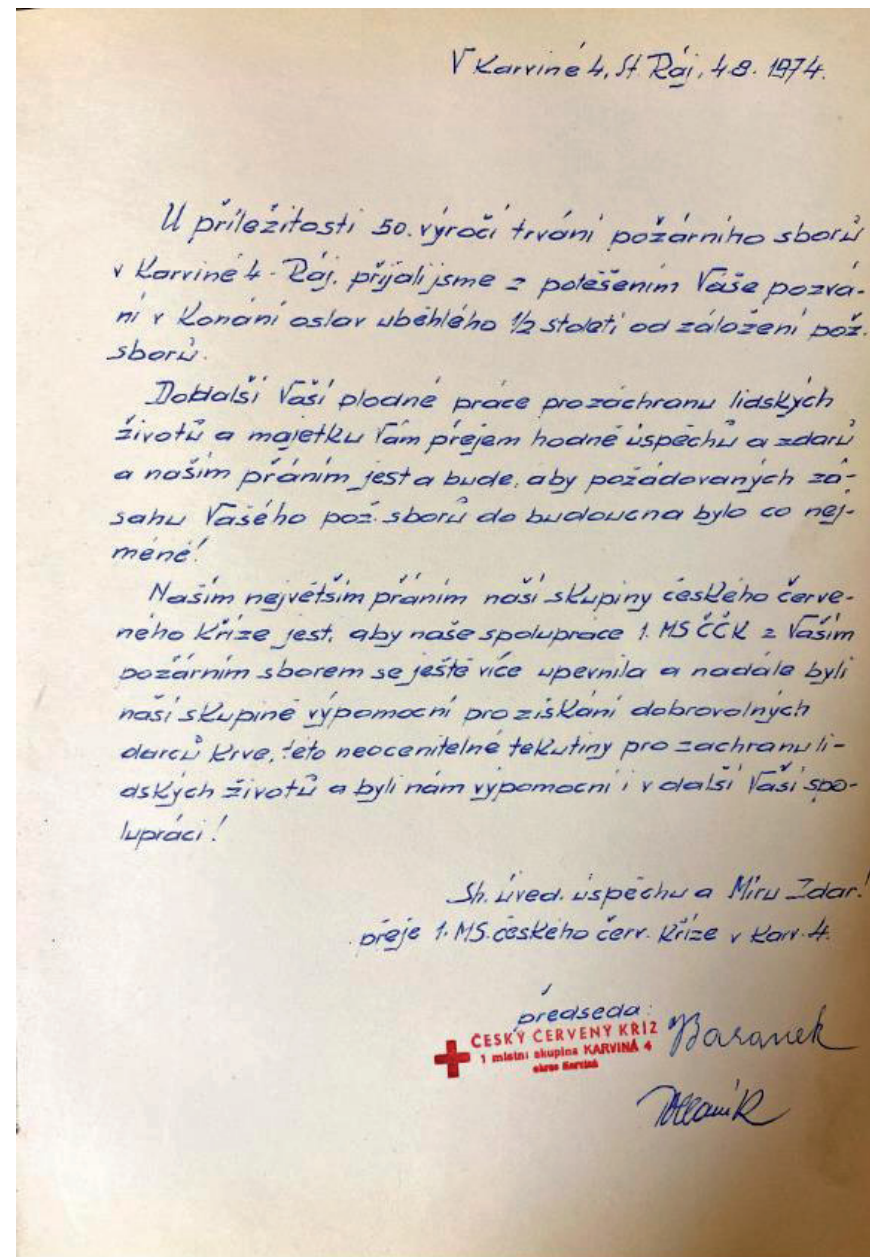 V Karviné 4, St. Ráj, 4.8. 1974.
U příležitosti 50. výročí trvání požárního sborů
v Karviné 4 - Ráj. přijali jsme z potěšením Vaše pozvá-
ní v Konání oslav uběhlého 1/2 století od založení pož.
sborů.
Dobdalší Vaší plodné práce prozáchranu lidských
životů a majetku Vám přejem hodně úspěchů a zdarů
a našim přáním jest a bude, aby požádovaných zá-
sahu Vašého pož. sborů do budoucna bylo co nej-
méně!
Naším největším přáním naší skupiny českého červe-
ného Kříze jest, aby naše spolupráce 1. MS ČČK z Vaším
požárním sborem se ještě více upevnila a nadále byli
naší skupině výpomocní pro získání dobrovolných
darců Krve, této neocenitelné tekutiny pro zachranu li-
dských životů a byli nám výpomocní i v další Vaší spo-
lupráci!
Sh. úved. úspěchu a Míru Zdar!
přeje 1. MS. českého červ. Kříze v Karv. 4.
předseda:
ČESKÝ ČERVENÝ KŘÍŽ
1 místní skupina KARVINÁ 4
okres Karviná
Baranek